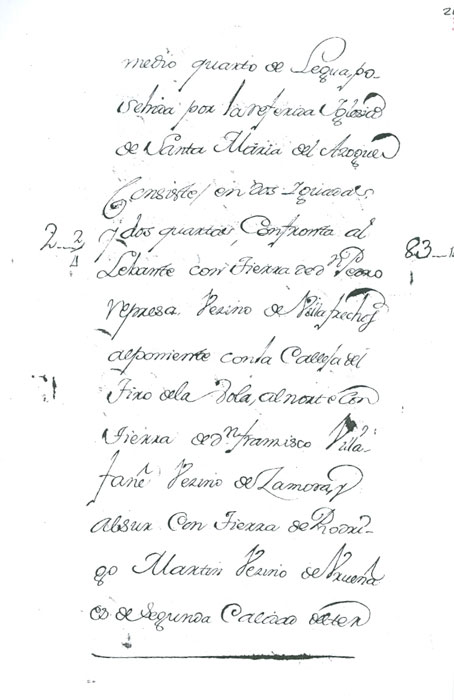 medio quarto de Legua, po-
sehida por la referida Iglesia
de Santa Maria del Azogue
Consiste, en dos Iguadas
2 2/4 y dos quartas, Confronta al 83
Lebante con Tierra de dn Pedro
represa Vezino de Villafrechos
alponiente con la Calleja del
Tiro dela Bola, al norte Con
Tierra de dn francisco Villa-
fañe Vezino de Zamora, y
alsur Con Tierra de Rodri-
go Martin Vezino de Urueña
es de Segunda Calidad